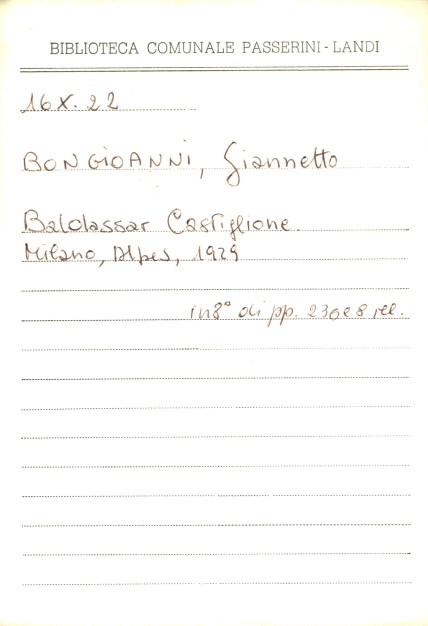 BIBLIOTECA COMUNALE PASSERINI - LANDI
16 X. 22
BONGIOANNI, Giannetto
Baldassar Castiglione.
Milano, Alpes, 1929
in 8° di pp. 230 e 8 ril.